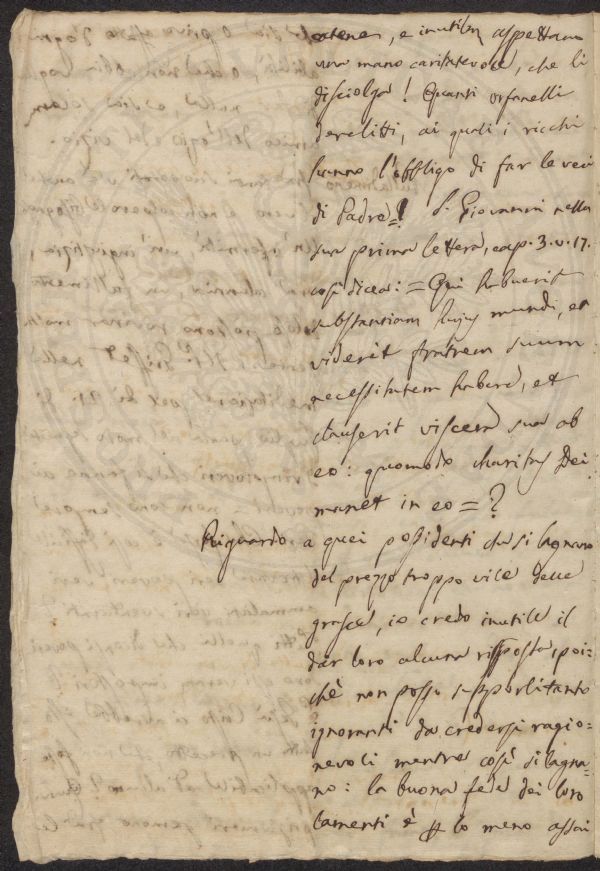 catene, e inutilm aspettano
una mano caritatevole, che li
disciolga! Quanti orfanelli
derelitti, ai quali i ricchi
hanno l'obbligo di far le veci
di Padre! S. Giovanni nella
sua prima lettera, cap. 3. v. 17.
così dicea: = Qui habuerit
substantiam hujus mundi, et
viderit fratrem suum
necessitatem habere, et
clauserit viscera sua ab
eo: quomodo charitas Dei
manet in eo = ?
Riguardo a quei possidenti che si lagnano
del prezzo troppo vile delle
grasce, io credo inutile il
dar loro alcuna risposta, poi=
chè non posso supporli tanto
ignoranti da credersi ragio=
nevoli mentre così si lagna=
no: la buona fede dei loro
lamenti è lo meno assai